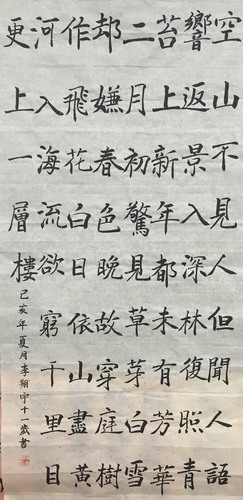 空山不見人但聞人語
響返景入深林復照青
苔上新年都未有芳華
二月初驚見草芽白雪
却嫌春色晚故穿庭樹
作飛花白日依山盡黃
河入海流欲窮千里目
更上一層樓
己亥年夏月李翔宇十一歲書